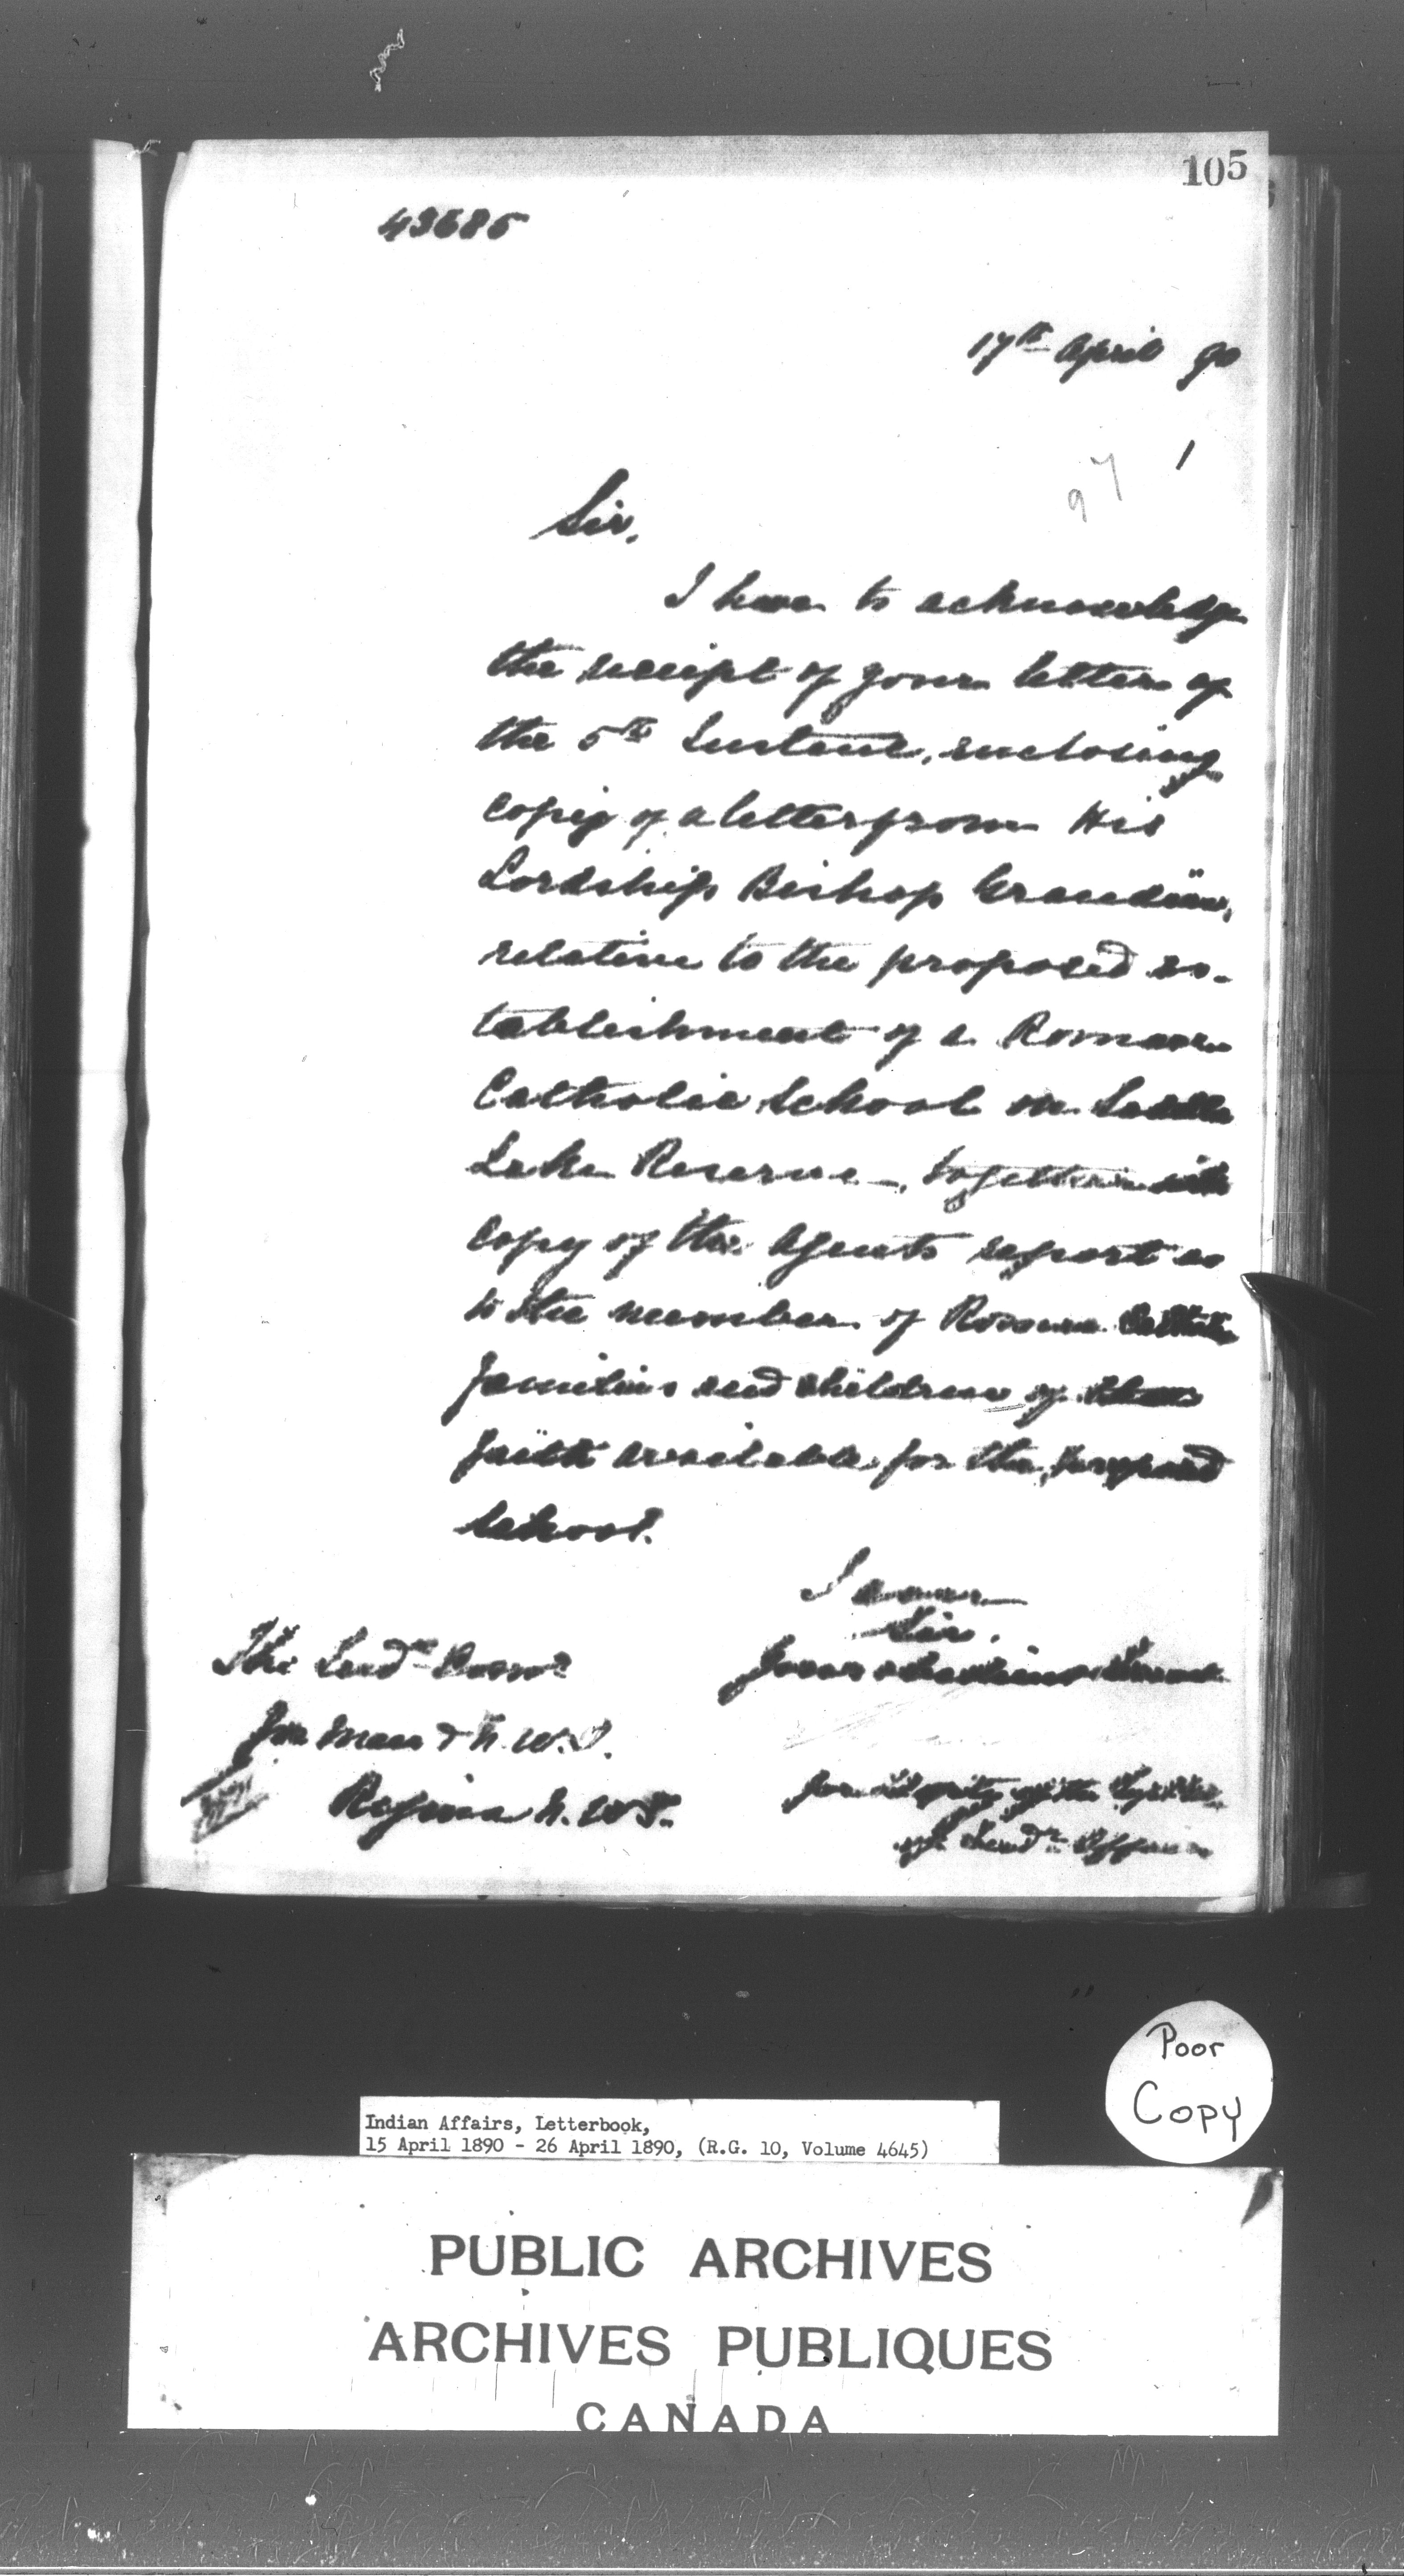 105
43685
17th April 90
97
Sir,
I have to acknowledge
the receipt of your letter of
the 5th Instant, enclosing
copy of a letter from His
Lordship Bishop Grandin,
relative to the proposed es-
tablishment of a Roman
Catholic School on Saddle
Lake Reserve, together with
copy of the Agents report as
to the number of Roman Catholic
families and children of that
faith available for the proposed
School.
I am
Sir,
Your obedient Servant
The Indn Commr
for Man & N. W. T.
Regina N. W. T.
for Deputy of the Supt Genl
of Indn Affairs
Poor
Copy
Indian Affairs, Letterbook,
15 April 1890 - 26 April 1890, (R.G. 10, Volume 4645)
PUBLIC ARCHIVES
ARCHIVES PUBLIQUES
CANADA